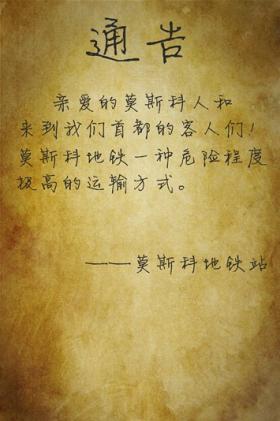 通告
亲爱的莫斯科人和
来到我们首都的客人们！
莫斯科地铁一种危险程度
极高的运输方式。
——莫斯科地铁站